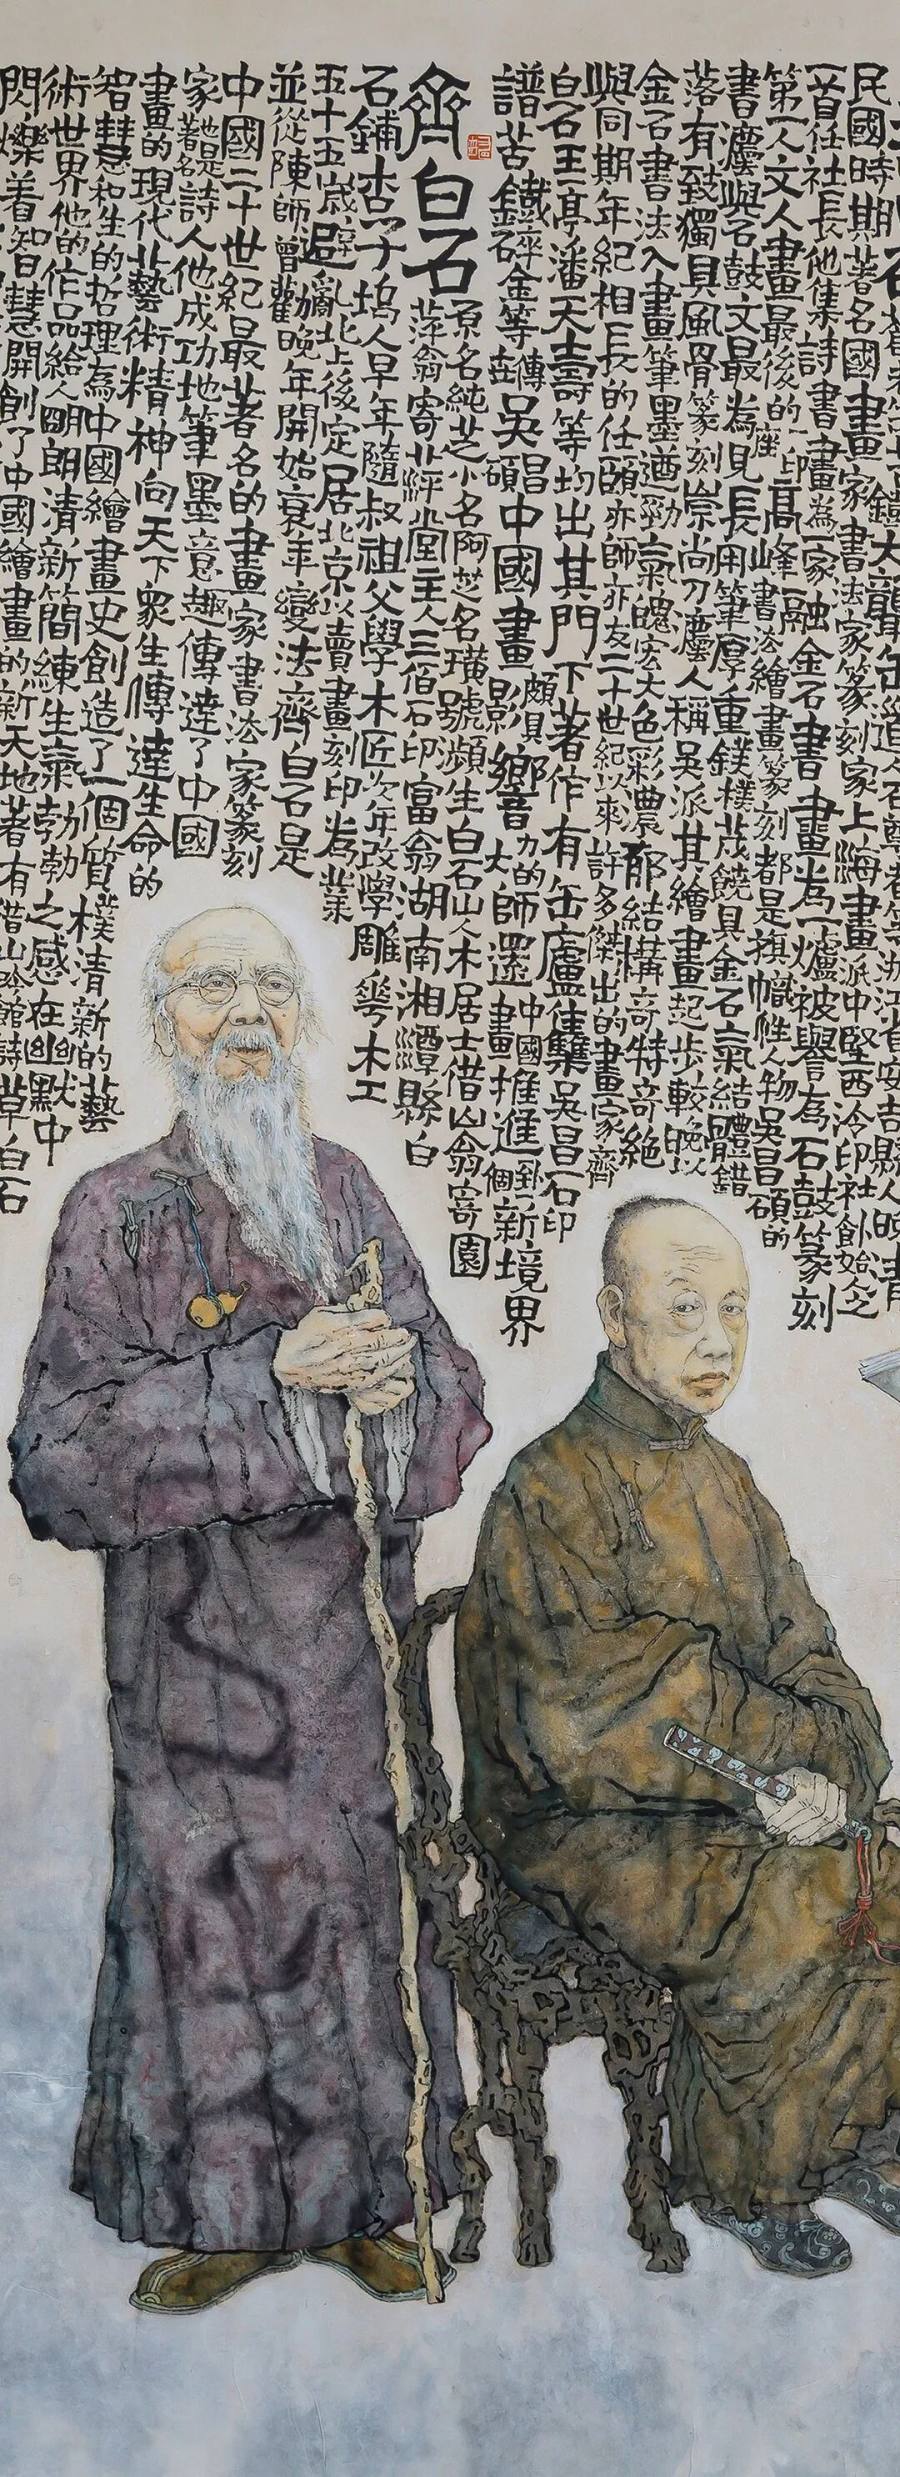 民國時期著名國畫家書法家篆刻家上海畫派中堅西泠印社創始人之
一首任社長他集詩書畫為一家融金石書畫為一爐被譽為石鼓篆刻
第一人文人畫最後的一座高峰書法繪畫篆刻都是旗幟性人物吳昌碩的
書灋與石鼓文最為見長用筆厚重鏷樸茂饒具金石氣結體錯
落有致獨具風骨篆刻崇尚刀灋人稱吳派其繪畫起步較晚以
金石書法入畫筆墨遒勁氣魄宏大色彩濃郁結構奇特奇絕
與同期年紀相長的任頤亦師亦友二十世紀以來許多傑出的畫家齊
白石王亭潘天壽等均出其門下著作有缶廬集吳昌石印
譜苦鐵碎金等傳 吳昌碩中國畫影響頗具力的大師還畫中國推進個新境界
齊白石
原名純芝小名阿芝名璜號瀕生白石山人木居士借山翁寄園
萍翁寄萍堂主人三佰石印富翁湖南湘潭縣白
石鋪杏子塢人早年隨叔祖父學木匠次年改學雕花木工
五十五歲避亂北上後定居北京以賣畫刻印為業
並從陳師曾勸晚年開始衰年變法齊白石是
中國二十世紀最著名的畫家書法家篆刻
家他是著名詩人他成功地筆墨意趣傳達了中國
畫的現代藝術精神向天下眾生傳達生命的
智慧和生的哲理為中國繪畫史創造了一個質樸清新的藝
術世界他的作品給人明朗清新簡練生氣勃勃之感在幽默中
閃爍着智慧開創了中國繪畫的新天地著有借山吟館詩草白石